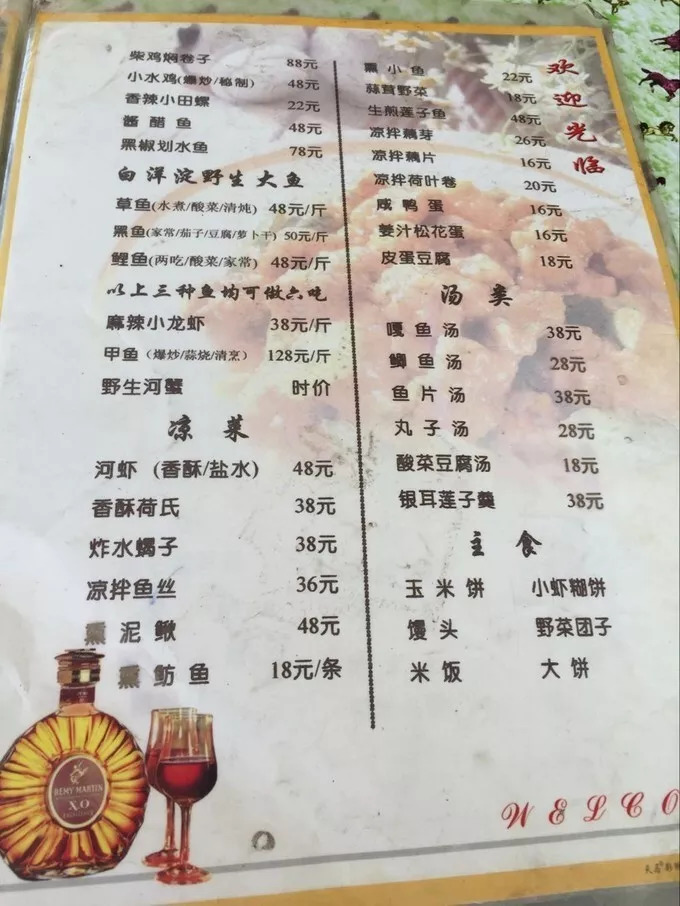 柴鸡焖卷子 88元
小水鸡(爆炒/秘制) 48元
香辣小田螺 22元
酱醋鱼 48元
黑椒划水鱼 78元
白洋淀野生大鱼
草鱼(水煮/酸菜/清炖) 48元/斤
黑鱼(家常/茄子/豆腐/萝卜干) 50元/斤
鲤鱼(两吃/酸菜/家常) 48元/斤
以上三种鱼均可做六吃
麻辣小龙虾 38元/斤
甲鱼（爆炒/蒜烧/清烹） 128元/斤
野生河蟹 时价
凉菜
河虾 (香酥/盐水) 48元
香酥荷氏 38元
炸水蝎子 38元
凉拌鱼丝 36元
熏泥鳅 48元
熏鲂鱼 18元/条
熏小鱼 22元
蒜茸野菜 18元
生煎莲子鱼 48元
凉拌藕芽 26元
凉拌藕片 16元
凉拌荷叶卷 20元
咸鸭蛋 16元
姜汁松花蛋 16元
皮蛋豆腐 18元
汤类
嘎鱼汤 38元
鲫鱼汤 28元
鱼片汤 38元
丸子汤 28元
酸菜豆腐汤 18元
银耳莲子羹 38元
主食
玉米饼 小虾糊饼
馒头 野菜团子
米饭 大饼
欢迎光临
REMY MARTIN
X.O
EXCELLENCE
WELCO